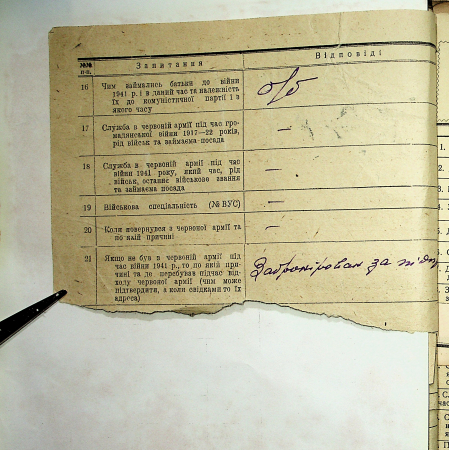 №№ п-п.
Запитання
Відповіді
16
Чим займались батьки до війни
1941 р. і в даний час та належність
їх до комуністичної партії і з
якого часу
б/п
17
Служба в червоній армії під час гро-
мадянської війни 1917—22 років,
рід військ та займаєма посада
—
18
Служба в червоній армії під час
війни 1941 року, який час, рід
військ, останнє військове звання
та займаєма посада
—
19
Військова спеціальність (№ ВУС)
—
20
Коли повернувся з червоної армії та
по якій причині
—
21
Якщо не був в червоній армії під
час війни 1941 р., то по якій при-
чині та де перебував підчас від-
ходу червоної армії (чим може
підтвердити, а коли свідками то їх
адреса)
Забронирован за